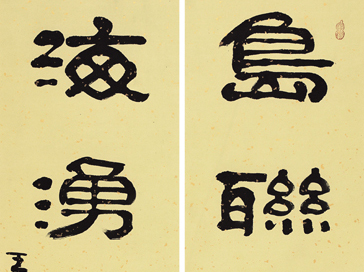 島聯
海湧